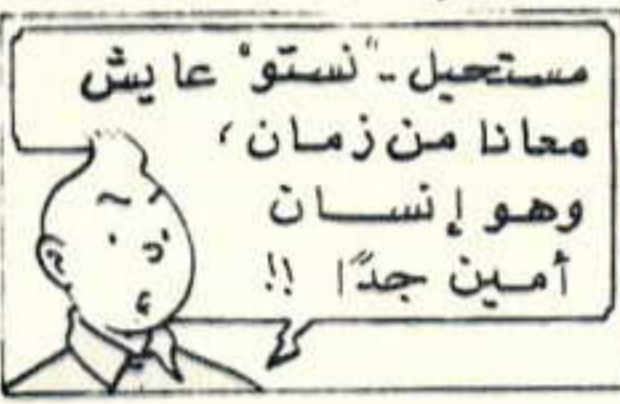 مستحيل.. "نستو" عايش
معانا من زمان،
وهو إنسان
أمين جدًا !!